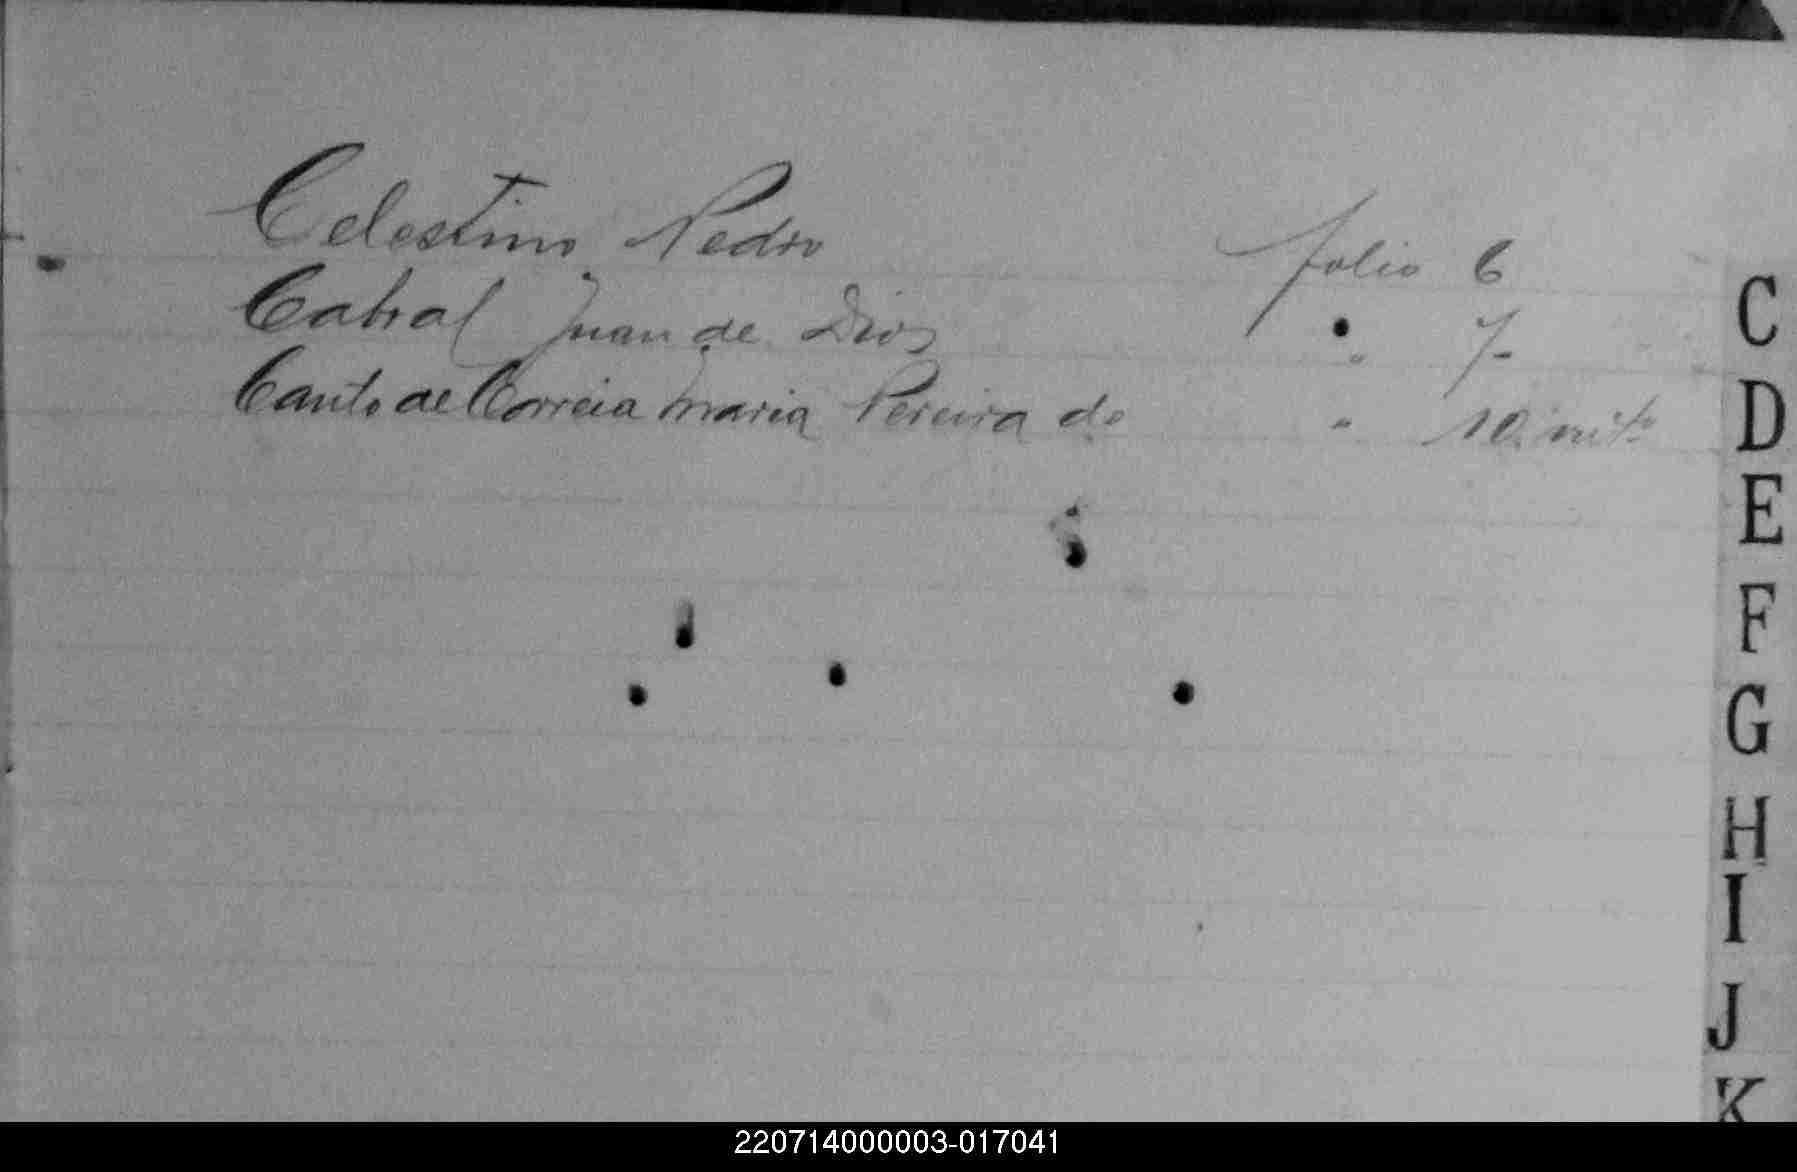 Celestino Pedro folio 6
Cabral Juan de Dios " 7-
Canto de Correia Maria Pereira do " 10
C
D
E
F
G
H
I
J
K
220714000003-017041